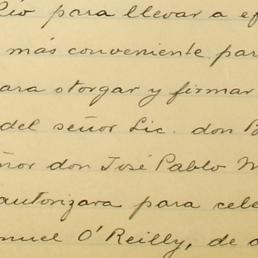 Río para llevar a ef
más conveniente par
ara otorgar y firmar
del señor Lic. don P
ñor don José Pablo M
autorizara para cele
nuel O'Reilly, de a